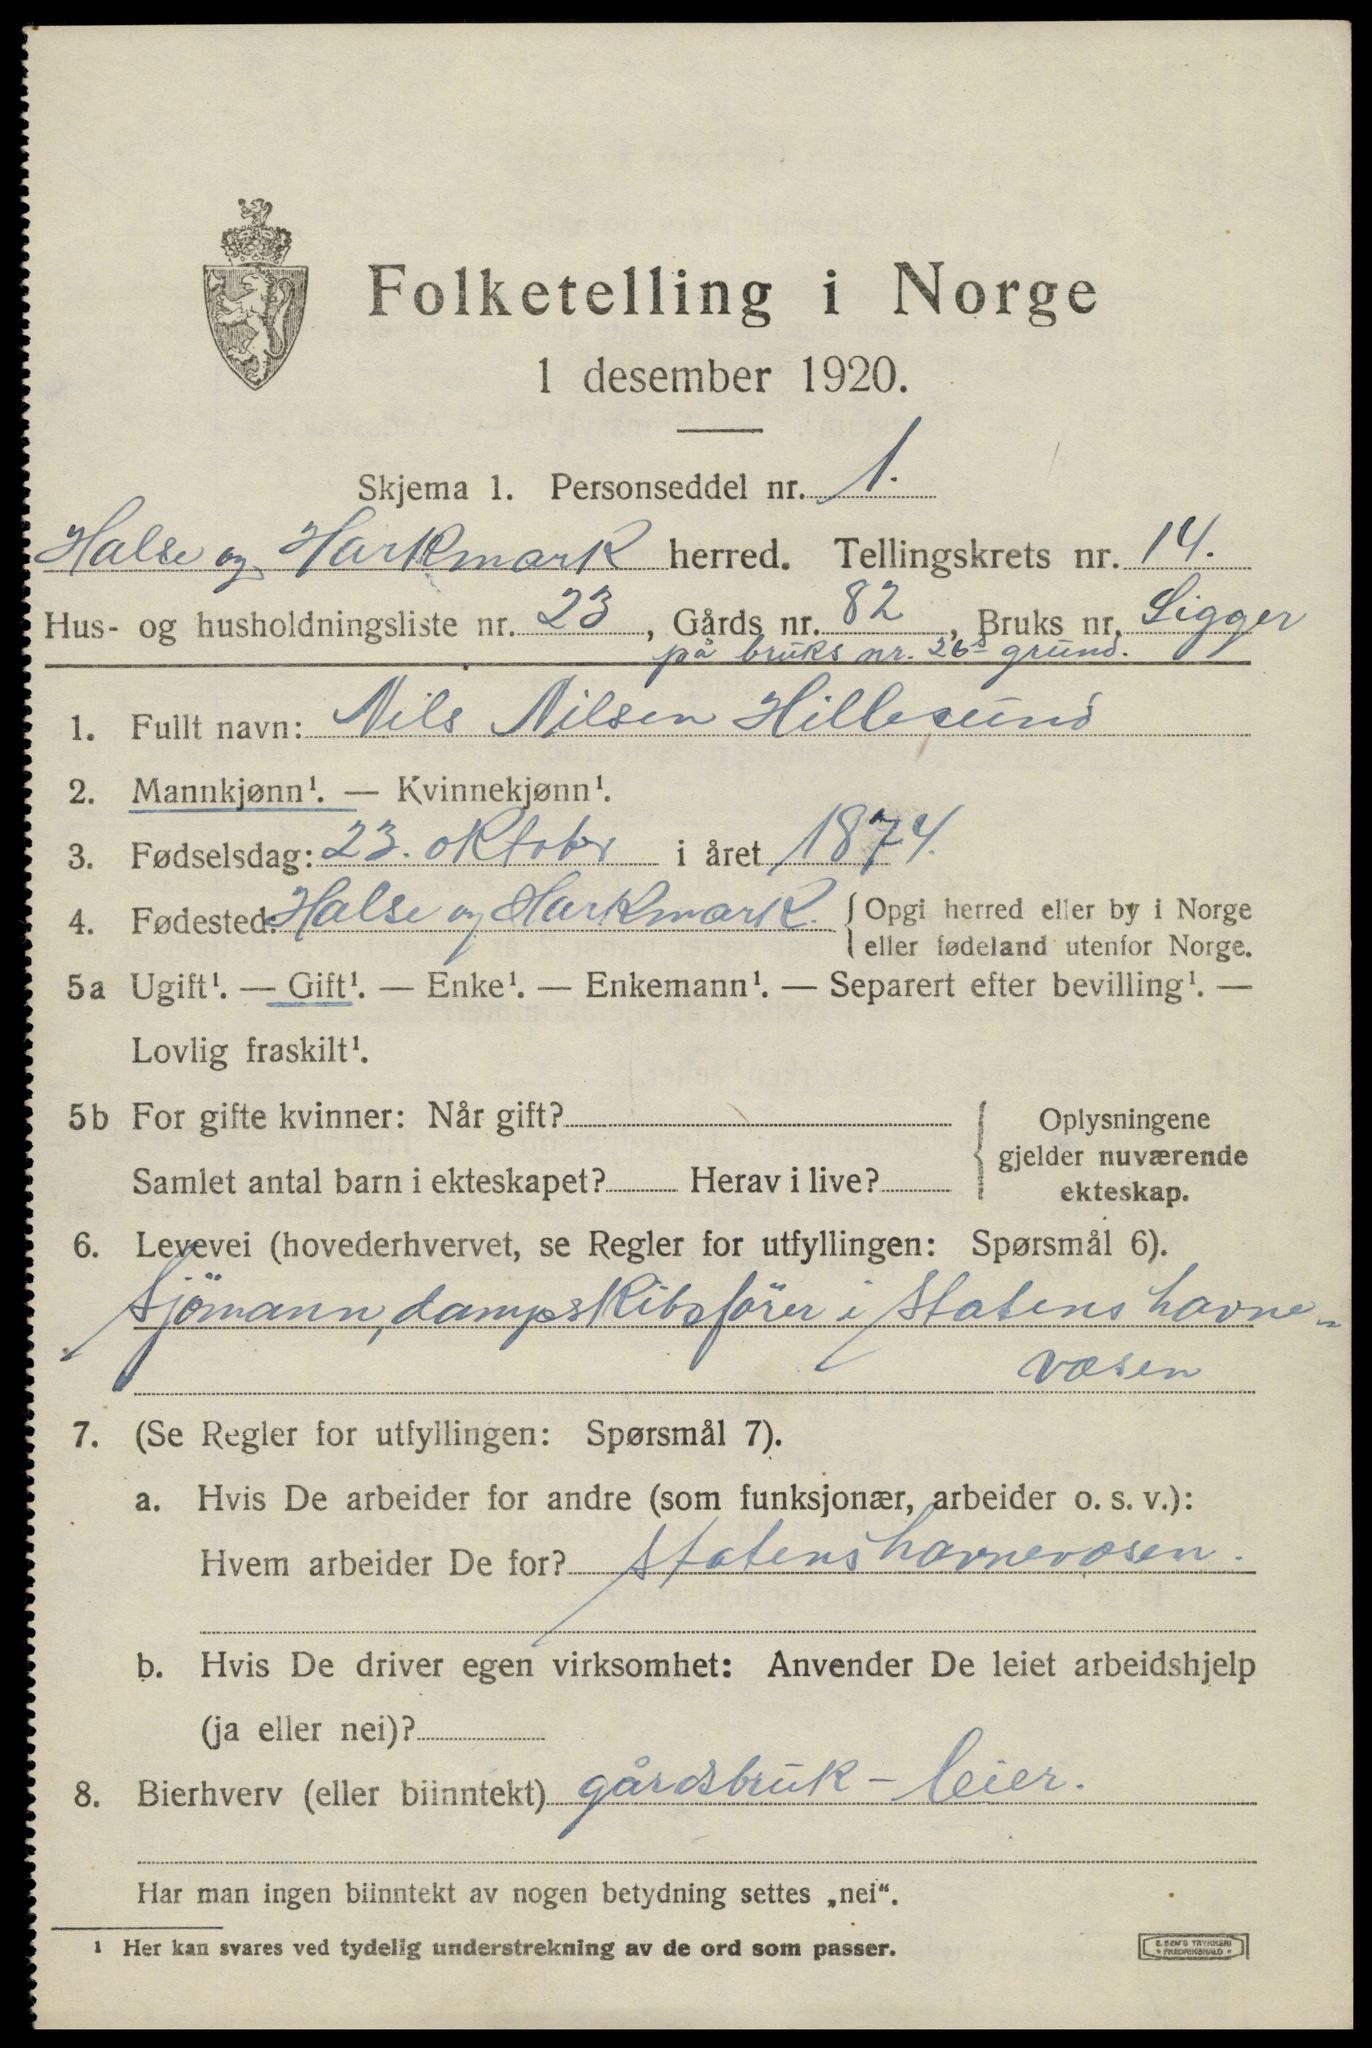 Folketelling i Norge
1 desember 1920.
Skjema 1. Personseddel nr. 1.
Halse og Harkmark herred. Tellingskrets nr. 14.
Hus- og husholdningsliste nr. 23, Gårds nr. 82, Bruks nr. Ligger
på bruks nr. 26s grund.
1. Fullt navn: Nils Nilsen Hillesund
2. Mannkjønn¹. — Kvinnekjønn¹.
3. Fødselsdag: 23. oktober i året 1874.
4. Fødested: Halse og Harkmark. { Opgi herred eller by i Norge
eller fødeland utenfor Norge.
5a Ugift¹. — Gift¹. — Enke¹. — Enkemann¹. — Separert efter bevilling¹. —
Lovlig fraskilt¹.
5b For gifte kvinner: Når gift? { Oplysningene
gjelder nuværende
Samlet antal barn i ekteskapet? Herav i live?
ekteskap.
6. Levevei (hovederhvervet, se Regler for utfyllingen: Spørsmål 6).
Sjömann, dampskibsförer i Statens havne-
væsen
7. (Se Regler for utfyllingen: Spørsmål 7).
a. Hvis De arbeider for andre (som funksjonær, arbeider o. s. v.):
Hvem arbeider De for? Statens havnevæsen.
b. Hvis De driver egen virksomhet: Anvender De leiet arbeidshjelp
(ja eller nei)?
8. Bierhverv (eller biinntekt) gårdsbruk – leier.
Har man ingen biinntekt av nogen betydning settes „nei“.
¹ Her kan svares ved tydelig understrekning av de ord som passer.
E. SEM'S TRYKKERI
FREDRIKSHALD